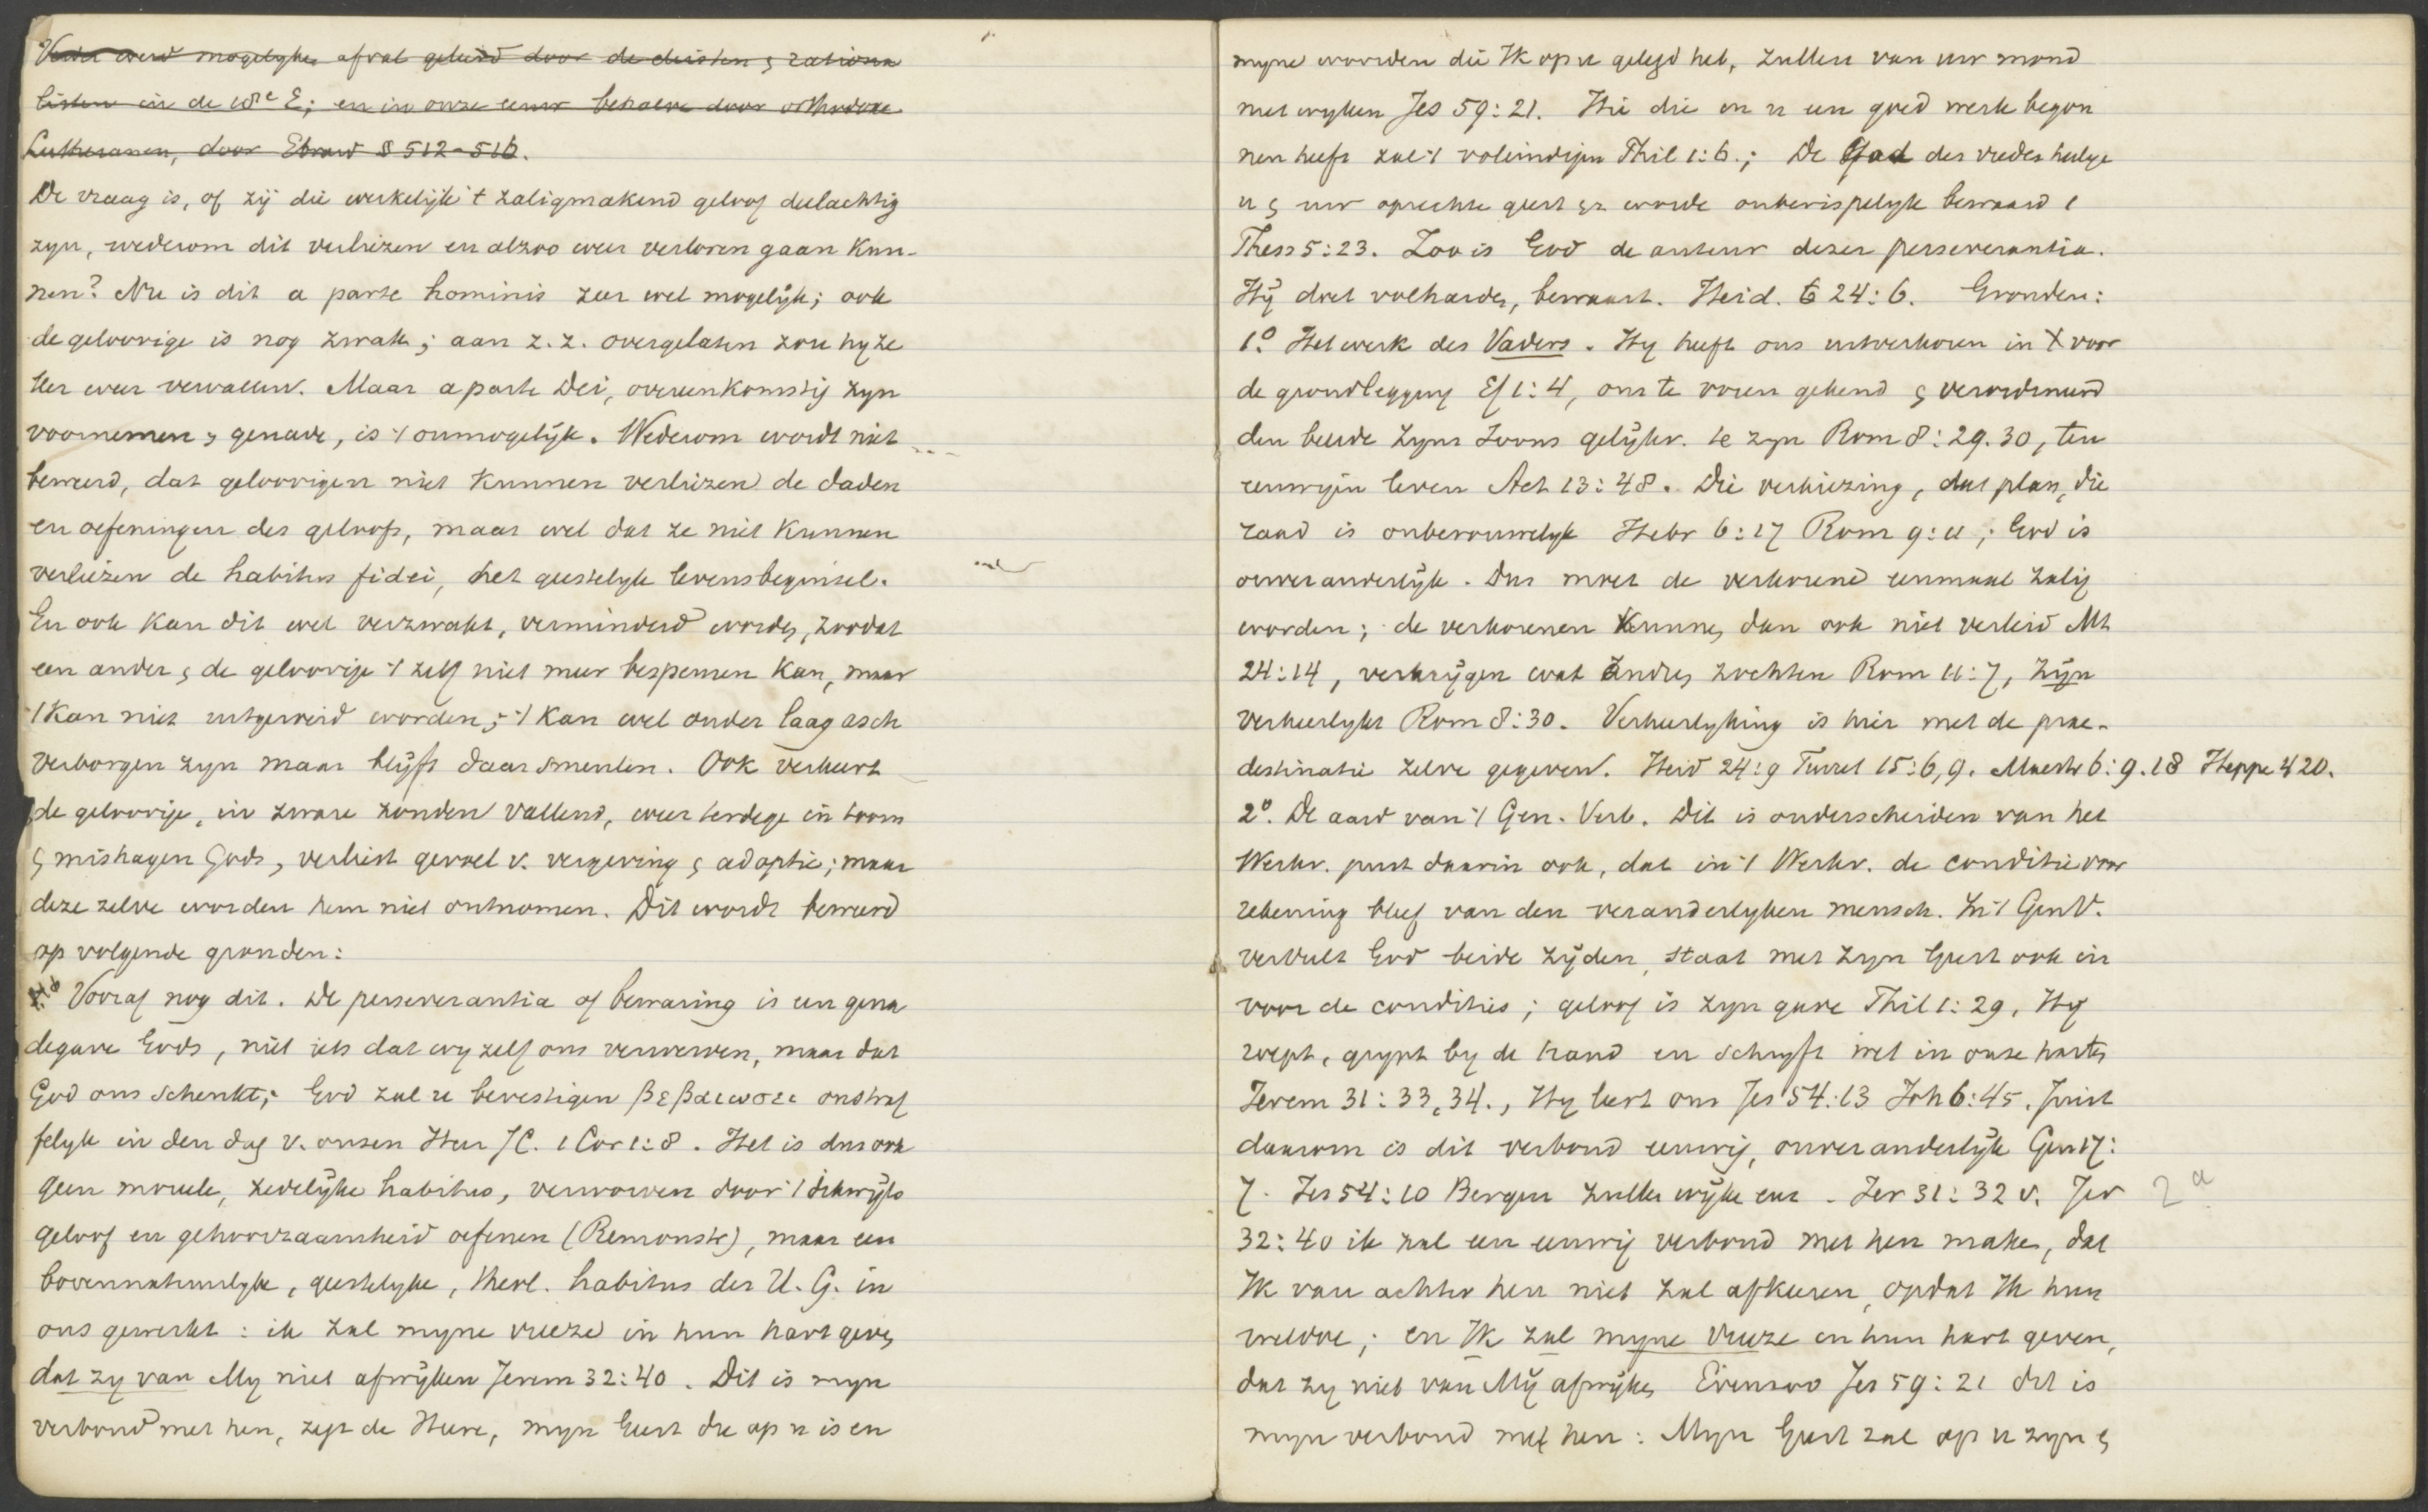 Verder werd mogelyke afval geleerd door de deisten & rationa
listen in de 18e E; en in onze eeuw behalve door orthodoxe
Lutheranen, door Ebrard § 512-516.
De vraag is, of zij die werkelijk 't zaligmakend geloof deelachtig
zyn, wederom dit verliezen en alzoo weer verloren gaan kun-
nen? Nu is dit a parte hominis zeer wel mogelijk; ook
de geloovige is nog zwak; aan z.z. overgelaten zou hy ze
ker weer vervallen. Maar a parte Dei, overeenkomstig zyn
voornemen & genade, is 't onmogelijk. Wederom wordt niet
beweerd, dat geloovigen niet kunnen verliezen de daden
en oefeningen des geloofs, maar wel dat ze niet kunnen
verliezen de habitus fidei, het geestelyk levensbeginsel.
En ook kan dit wel verzwakt, verminderd worden, zoodat
een ander & de geloovige 't zelf niet meer bespeuren kan, maar
't kan niet uitgeroeid worden; 't kan wel onder laag asch
verborgen zyn maar blijft daar smeulen. Ook verkeert
de geloovige, in zware zonden vallend, weer terdege in toorn
& mishagen Gods, verliest gevoel v. vergeving & adoptie; maar
deze zelve worden hem niet ontnomen. Dit wordt beweerd
op volgende gronden:
Vooraf nog dit. De perseverantia of bewaring is een gena
degave Gods, niet iets dat wy zelf ons verwerven, maar dat
God ons schenkt; God zal u bevestigen βεβαιωσει onstraf
felyk in den dag v. onzen Heer JC. 1 Cor 1:8. Het is dus ook
geen moreele, zedelijke habitus, verworven door 't dikwijls
geloof en gehoorzaamheid oefenen (Remonstr), maar een
bovennatuurlyke, geestelyke, theol. habitus des H. G. in
ons gewerkt: ik zal myne vreeze in hun hart geven
dat zy van My niet afwijken Jerem 32:40. Dit is myn
verbond met hen, zegt de Heere, myn Geest die op u is en
myne woorden die Ik op u gelegd heb, zullen van uw mond
niet wyken Jes 59:21. Hie die in u een goed werk begon
nen heeft zal 't voleindigen Phil 1:6.; De God des vredes heilige
u & uw oprechte geest worde onberispelyk bewaard 1
Thess 5:23. Zoo is God de auteur dezer perseverantia.
Hij doet volharden, bewaart. Heid. 24:6. Gronden:
1.º Het werk des Vaders. Hy heeft ons uitverkoren in X voor
de grondlegging Ef 1:4, ons te voren gekend & verordineerd
den beelde zyns Zoons gelijkv. te zyn Rom 8:29.30, ten
eeuwigen leven Act 13:48. Die verkiezing, dat plan, die
raad is onberouwelyk Hebr 6:17 Rom 9:11; God is
onveranderlijk. Dus moet de verkorene eenmaal zalig
worden; de verkorenen kunnen dan ook niet verleid Mt
24:14, verkrijgen wat andres zochten Rom 11:7, zijn
verheerlykt Rom 8:30. Verheerlyking is hier met de prae-
destinatie zelve gegeven. Heid 24:9 Turret 15:6,9. Maestr 6:9.18 Heppe 420.
2º. De aard van 't Gen. Verb. Dit is onderscheiden van het
Werkv. juist daarin ook, dat in 't Werkv. de conditie voor
rekening bleef van den veranderlyken mensch. In 't GenV.
vervult God beide zijden, staat met zyn Geest ook in
voor de condities; geloof is zyn gave Phil 1:29, Hy
roept, grypt by de hand en schryft wet in onze harten
Jerem 31:33,34., Hy leert ons Jes 54:13 Joh 6:45. Juist
daarom is dit verbond eeuwig, onveranderlijk Gen 17:
7. Jes 54:10 Bergen zullen wijken enz. Jer 31:32 v. Jer
2a
32:40 ik zal een eeuwig verbond met hen maken, dat
Ik van achter hen niet zal afkeeren, opdat Ik hun
weldoe; en Ik zal myne vreeze in hun hart geven,
dat zy niet van Mij afwijken Evenzoo Jes 59:21 dit is
myn verbond met hen: Myn Geest zal op u zyn &